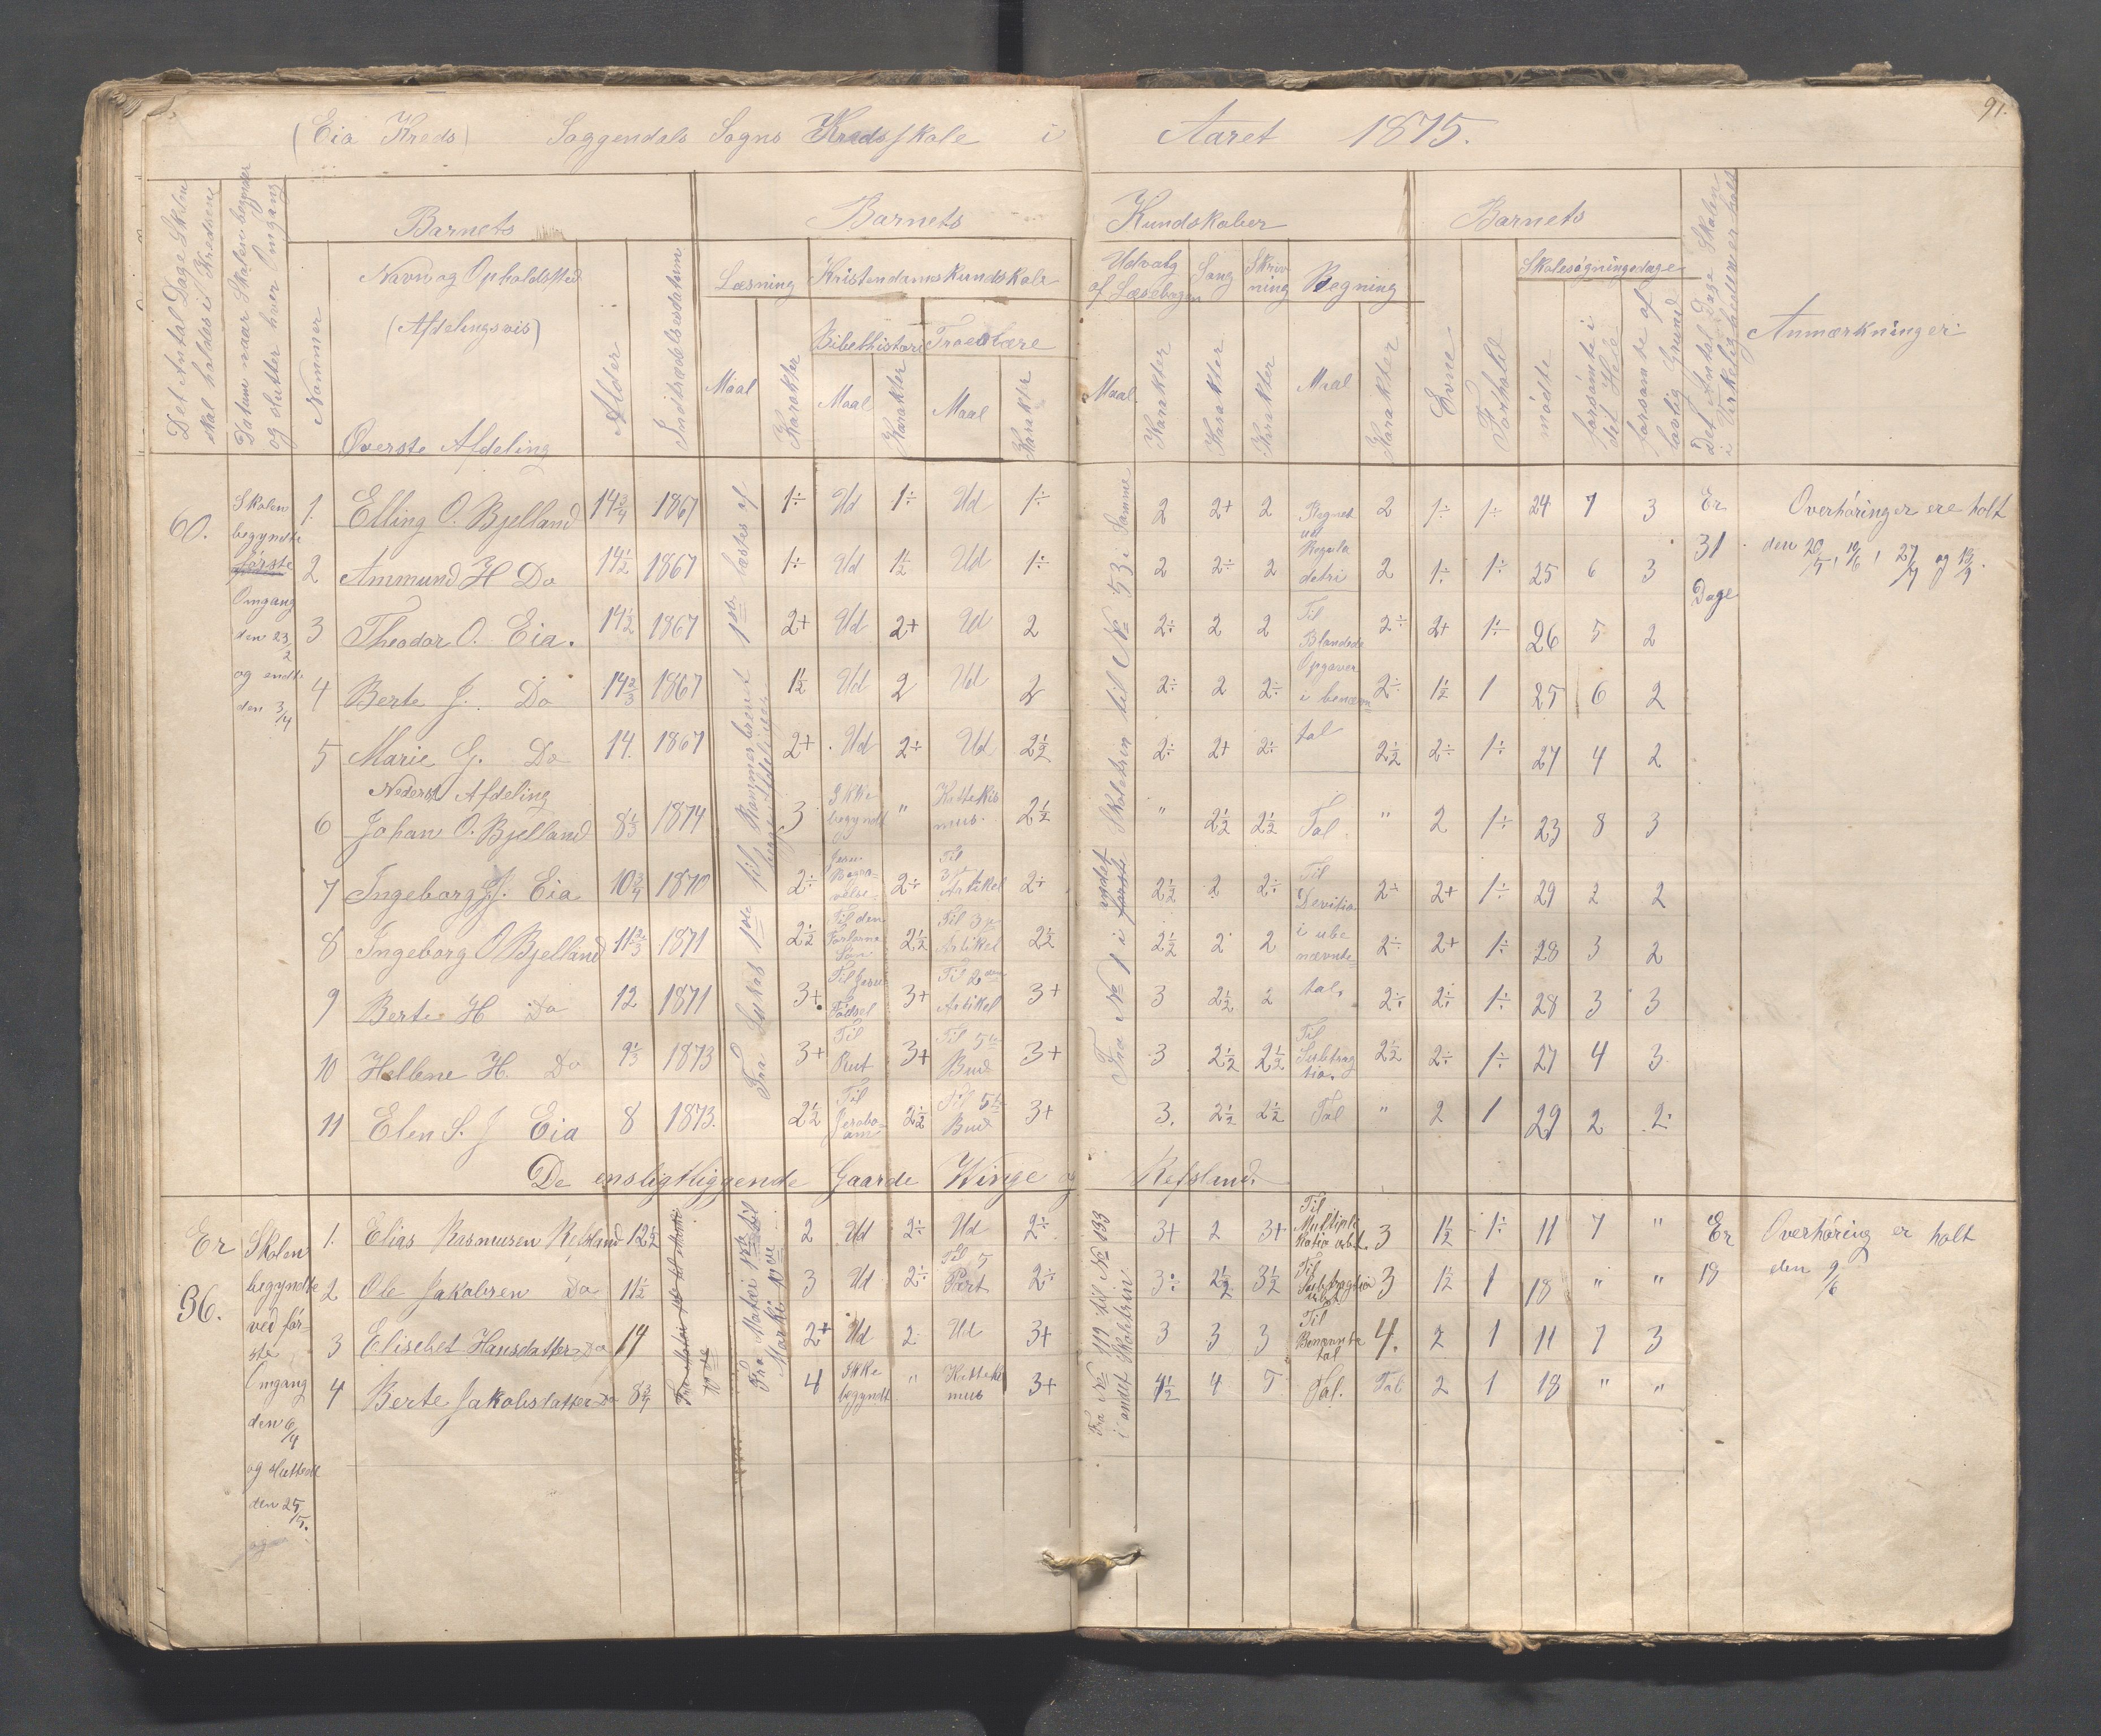 91.
(Eia Kreds) Soggendals Sogns Kredsskole i Aaret 1875.
Det Antal Dage Skolen skal holdes i Kredsene
Datum naar Skolen begynder og slutter hver Omgang
Nommer
Barnets
Navn og Opholdssted
(Afdelingsvis)
Øverste Afdeling
Alder
Indtrædelsesdatum
Barnets Kundskaber
Læsning Kristendomskundskab
Maal Karakter
Bibelhistorie Troeslære
Maal Karakter Maal Karakter
Udvalg af Læsebogen Sang Skrivning Regning
Maal. Karakter Karakter Karakter Maal Karakter
Barnets
Evne Forhold
Skolesøgningsdage
mødte forsømte i det Hele forsømte af lovlig Grund
Det Antal Dage Skolen i Virkeligheden er holdt
Anmærkninger
60.
Skolen begyndte første Omgang den 23/2 og endte den 3/4
1. Elling O. Bjelland 14 3/4 1867 1÷ Ud 1÷ Ud 1÷ 2 2+ 2 Regnet ud Regula detri 2 1÷ 1÷ 24 7 3
2 Ammund H Do 14 1/2 1867 1÷ Ud 1 1/2 Ud 1÷ 2 2÷ 2 2 1÷ 1÷ 25 6 3
3 Theodor O. Eia. 14 1/2 1867 2+ Ud 2+ Ud 2 2÷ 2 2 Til Blandede Opgaver i benævn tal 2÷ 2+ 1÷ 26 5 2
4 Berte J. Do 14 2/3 1867 1 1/2 Ud 2 Ud 2 2÷ 2 2÷ 2÷ 1 1/2 1 25 6 2
5 Marie G. Do 14. 1867 2+ Ud 2÷ Ud 2 1/2 2÷ 2+ 2÷ 2 1/2 2÷ 1÷ 27 4 2
Nederst Afdeling
6 Johan O. Bjelland 8 1/3 1874 3 Ikke begyndt " Kattekismus. 2 1/2 " 2 1/2 2 1/2 Tal " 2 1÷ 23 8 3
7 Ingeborg J. Eia 10 3/4 1870 2÷ 2÷ Til 3die Artikel 2÷ 2 1/2 2 2÷ Til Devision i ubenævnte tal. 2÷ 2+ 1÷ 29 2 2
8 Ingeborg O Bjelland 11 2/3 1871 2 1/2 Til den Forlorne Søn 2 1/2 Til 3die Artikel 2 1/2 2 1/2 2 2 2÷ 2+ 1÷ 28 3 2
9 Berte H Do 12 1871 3+ Til Jesu Fødsel 3+ Til 2den Artikel 3+ 3 2 1/2 2 2÷ 2÷ 1÷ 28 3 3
10 Hellene H. Do 9 1/3 1873 3+ Til Rut 3+ Til 5te Bud 3+ 3 2 1/2 2 1/2 Til Subtragtion 2 1/2 2÷ 1÷ 27 4 3
11 Elen S. J Eia 8 1873. 2 1/2 Til Jeroboam 2 1/2 Til 5te Bud 3+ 3. 2 1/2 2 1/2 Tal " 2 1 29 2 2
Er 31 Dage
Overhøringer ere holt
den 20/5, 10/6, 27/7 og 13/9.
De ensligtliggende Gaarde Winge og Refsland.
Er 36.
Skolen begyndte ved første Omgang den 6/4 og sluttende den 25/5.
1. Elias Rasmusen Refsland 12 1/2 2 Ud 2÷ Ud 2÷ 3+ 2 3+ Til Multiplikation ubt. 3 1 1/2 1÷ 11 7 "
2 Ole Jakobsen Do 11 1/2 3 Ud 2÷ Til 5 Part 2÷ 3÷ 2 1/2 3 1/2 Til Subtragtion 3 1 1/2 1 18 " "
3 Elisebet Hansdatter Do 14 2+ Ud 2 Ud 3+ 3 3 3 Til Benævnte tal 4. 2 1 11 7 3
4 Berte Jakobsdatter Do 8 3/4 4 Ikke begyndt " Kattekismus 3+ 4 1/2 4 5 Tal. Tal 2 1 18 " "
Fra Matæi 1ste til Marki 10de
Fra No 112 til No 133 i andet Skoletrin
Er 18
Overhøring er holt
den 9/6